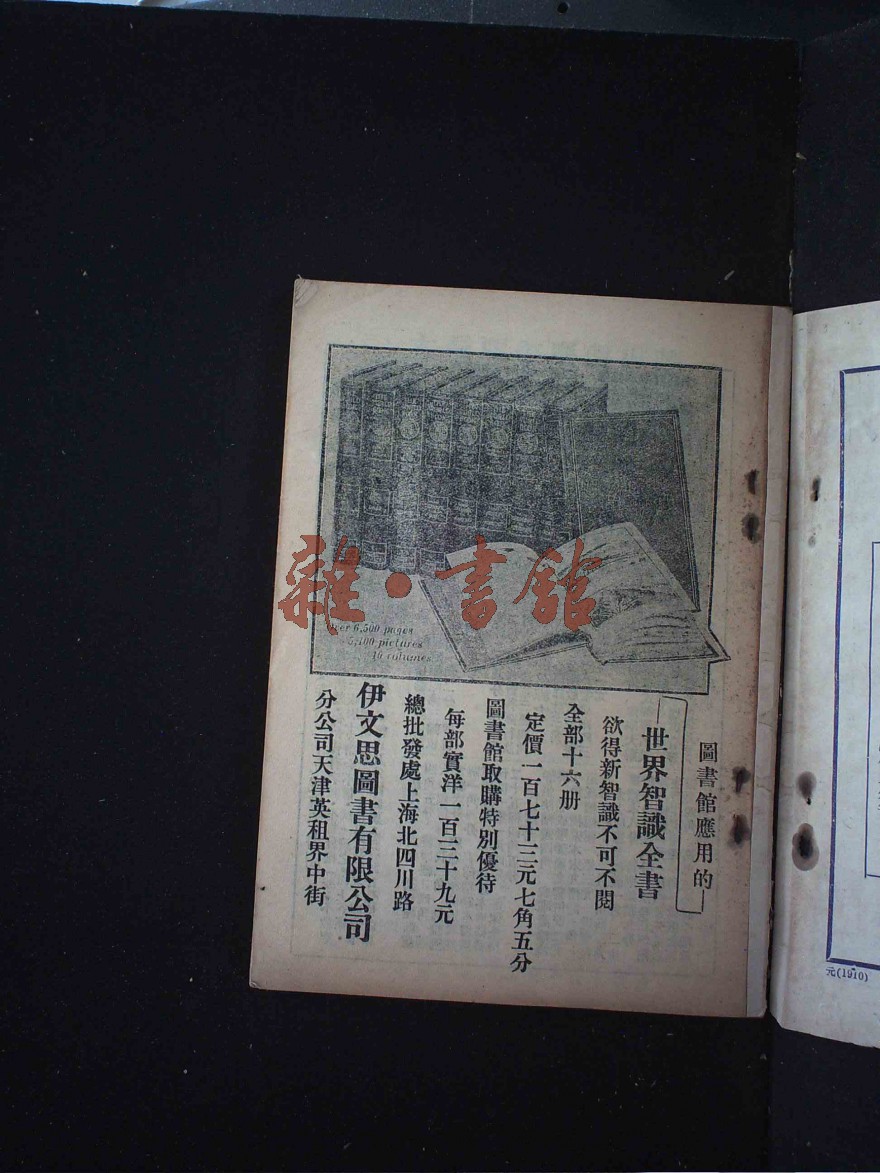 雜·書館
Over 6,500 pages
5,100 pictures
16 volumes
圖書館應用的
世界智識全書
欲得新智識不可不閱
全部十六册
定價一百七十三元七角五分
圖書館取購特別優待
每部實洋一百三十九元
總批發處上海北四川路
伊文思圖書有限公司
分公司天津英租界中街
元(1910)